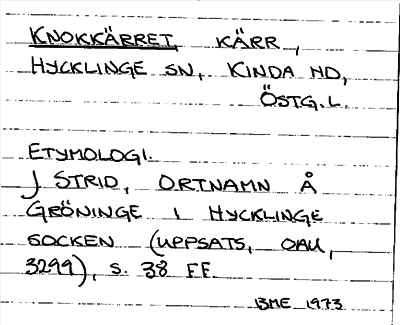 KNOKKÄRRET, KÄRR,
HYCKLINGE SN, KINDA HD,
ÖSTG. L.
ETYMOLOGI.
J STRID, ORTNAMN Å
GRÖNINGE I HYCKLINGE
SOCKEN (UPPSATS, OAU,
3299), S. 38 FF.
BME 1973